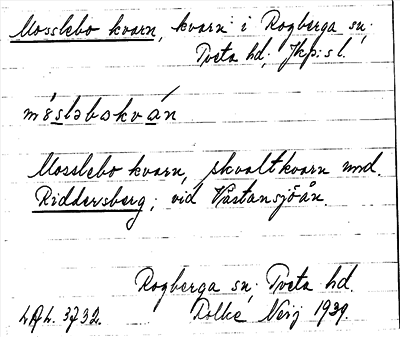 Mosslebo kvarn, kvarn i Rogberga sn,
Tveta hd, Jkp:s l.
mósləbokván
Mosslebo kvarn, skvaltkvarn und.
Riddersberg, vid Västansjöån.
Rogberga sn, Tveta hd.
1939.